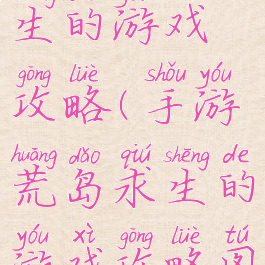 生的游戏
gōng lüè shǒu yóu
攻略(手游
huāng dǎo qiú shēng de
荒岛求生的
yóu xì gōng lüè tú
游戏攻略图